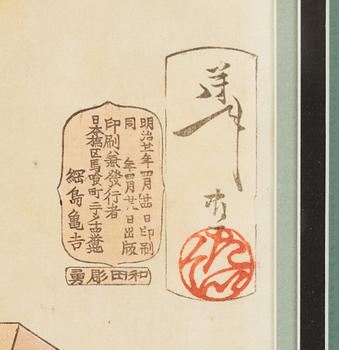 芳年
明治廿一年四月廿日印刷
同 年四月廿八日出版
印刷兼發行者
日本橋区馬喰町二丁目十四番地
綱島亀吉
和田彫勇